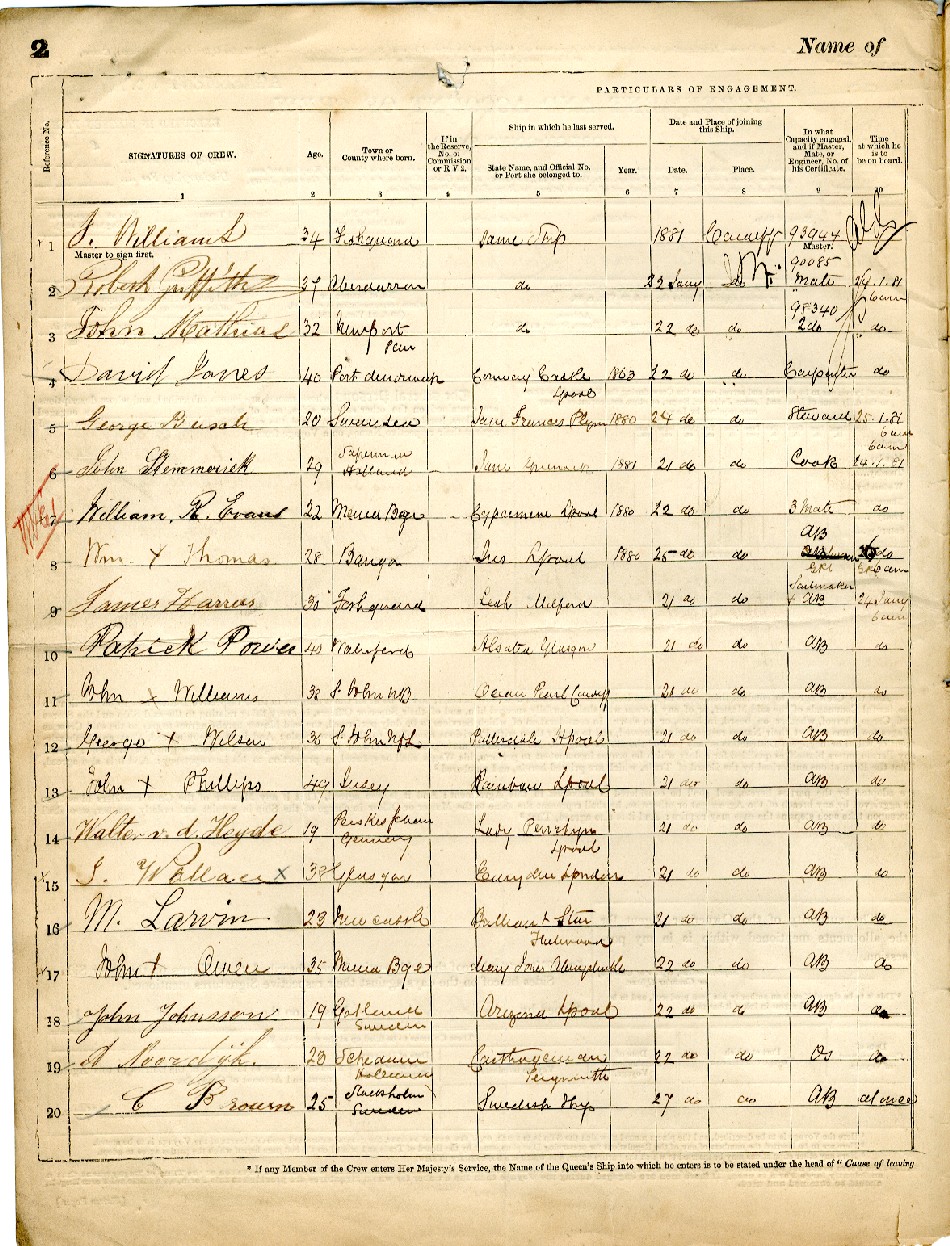 2
Name of
PARTICULARS OF ENGAGEMENT.
Reference No.
SIGNATURES OF CREW.
Age.
Town or
County where born.
If in
the Reserve,
No. of
Commission
or R V 2.
Ship in which he last served.
State Name, and Official No.
or Port she belonged to.
Year.
Date and Place of joining
this Ship.
Date.
Place.
In what
Capacity engaged,
and if Master,
Mate, or
Engineer, No. of
his Certificate.
Time
at which he
is to
be on board.
1 2 3 4 5 6 7 8 9 10
1 J. Williams 34 Fishguard Same Ship 1881 Cardiff 93944
Master to sign first.
Master.
2 Robert Griffith 37 Aberdarron do 22 Jany do 90085 Mate 24.1.81
6 am
3 John Mathias 32 Newport Pem do 22 do do 98340 2 do do
4 David Jones 40 Conway Castle Lpool 1863 22 do do Carpenter do
5 George Bush 20 Swansea Jane Frances Plym 1880 24 do do Steward 25.1.81
6 am
6 John 29 Holland Jane 1881 21 do do Cook 24.1.81
6 am
7 William R. Evans 22 Lpool 1880 22 do do 3 Mate do
8 Wm x Thomas 28 Bangor Iris Lpool 1880 25 do do AB do
6 am
9 James Harries 30 Fishguard Leah Milford 21 do do Sailmaker + AB 24 Jany
6 am
10 Patrick Power 40 Waterford Alsatia Glasgow 21 do do AB do
11 John x Williams 32 St John NB Ocean Pearl Cardiff 21 do do AB do
12 George x Wilson 30 St John Lpool 21 do do AB do
13 John x Phillips 49 Rainbow Lpool 21 do do AB do
14 Walter v. d. Heyde 19 Germany Lady Penrhyn Lpool 21 do do AB do
15 J. Wallace x 38 Glasgow Eurydice London 21 do do AB do
16 M. Larvin 23 Newcastle Brilliant Star Fleetwood 21 do do AB do
17 John x Owen 35 Mary Jones 22 do do AB do
18 John Johnsson 19 Sweden Arizona Lpool 22 do do AB do
19 A Noordijk. 23 Schedam Carthagenian 22 do do Os do
20 C Brown 25 Stockholm Sweden Swedish Ship 27 do do AB at once
* If any Member of the Crew enters Her Majesty's Service, the Name of the Queen's Ship into which he enters is to be stated under the head of "Cause of leaving